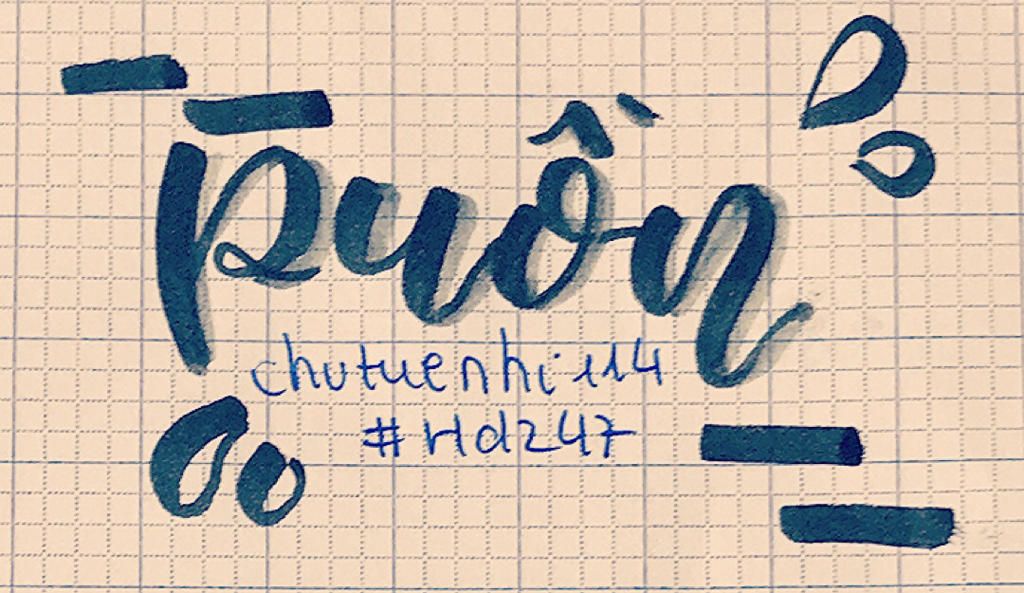 puồn
chutuenhi114
#Hdz47